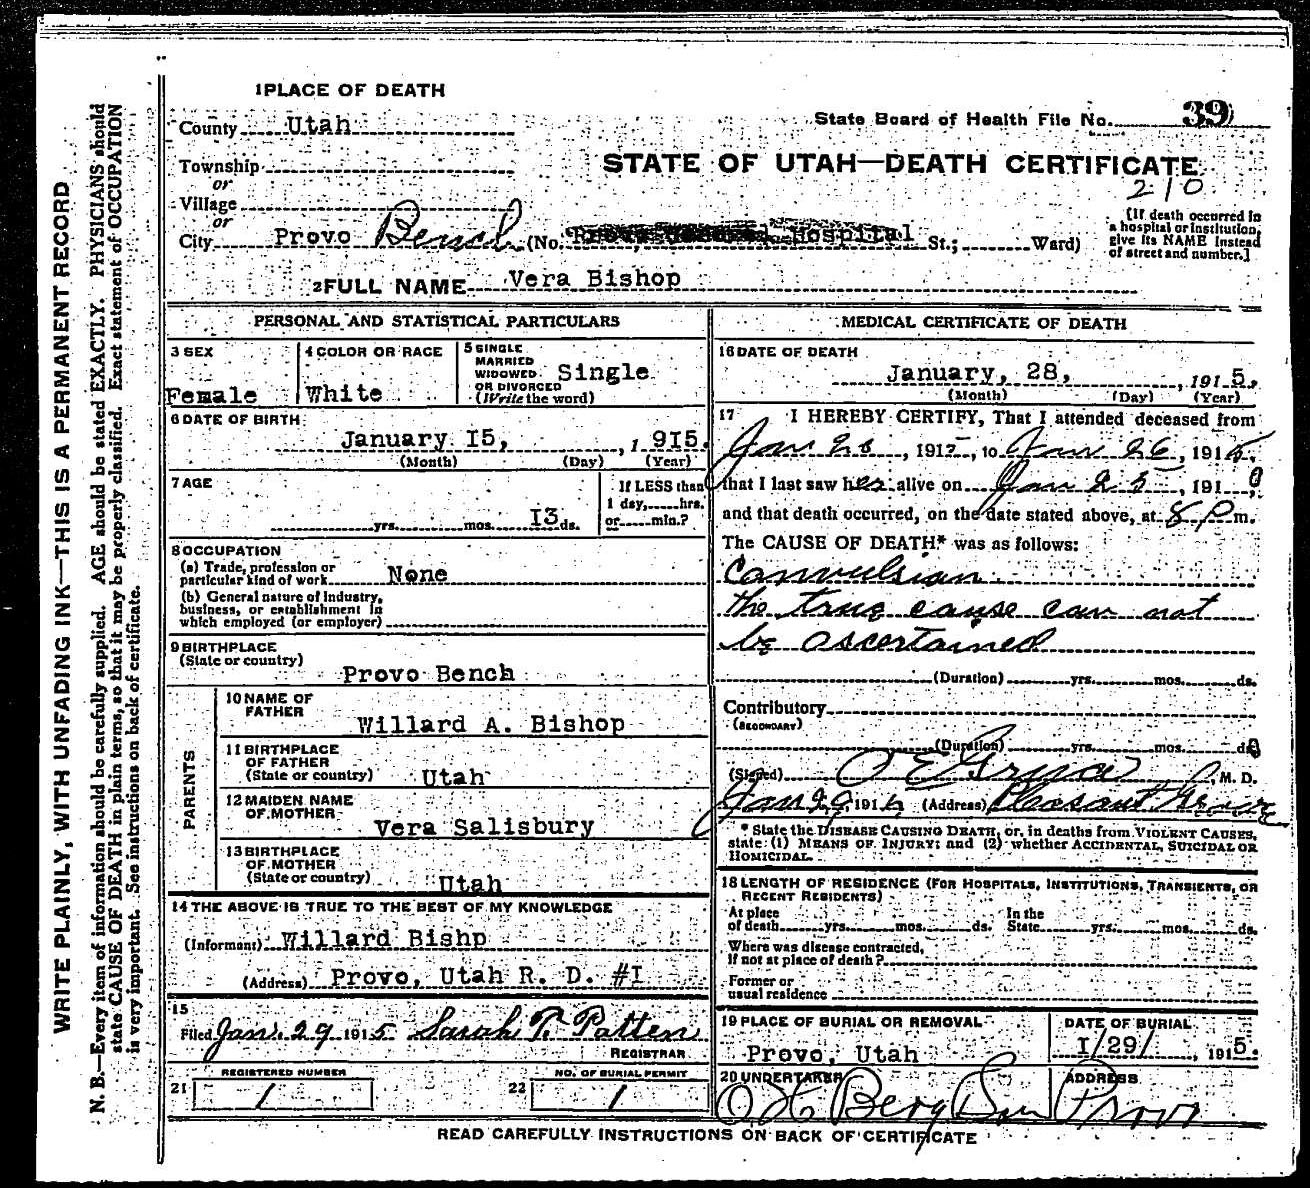 1 PLACE OF DEATH
County Utah
State Board of Health File No. 39
Township
or
Village
or
City Provo Bench (No. Hospital St.; Ward)
STATE OF UTAH—DEATH CERTIFICATE
210
[If death occurred in
a hospital or institution,
give its NAME instead
of street and number.]
2 FULL NAME Vera Bishop
PERSONAL AND STATISTICAL PARTICULARS
3 SEX
Female
4 COLOR OR RACE
White
5 SINGLE
MARRIED
WIDOWED
OR DIVORCED
(Write the word)
Single
6 DATE OF BIRTH
January 15, , 1 915.
(Month) (Day) (Year)
7 AGE
yrs. mos. 13 ds.
If LESS than
1 day, hrs.
or min.?
8 OCCUPATION
(a) Trade, profession or
particular kind of work None
(b) General nature of industry,
business, or establishment in
which employed (or employer)
9 BIRTHPLACE
(State or country)
Provo Bench
PARENTS
10 NAME OF
FATHER
Willard A. Bishop
11 BIRTHPLACE
OF FATHER
(State or country) Utah
12 MAIDEN NAME
OF MOTHER
Vera Salisbury
13 BIRTHPLACE
OF MOTHER
(State or country) Utah
14 THE ABOVE IS TRUE TO THE BEST OF MY KNOWLEDGE
(Informant) Willard Bishp
(Address) Provo, Utah R. D. #1
15
Filed Jan. 29 1915 Sarah T. Patten
REGISTRAR
REGISTERED NUMBER
21 1
NO. OF BURIAL PERMIT
22 1
MEDICAL CERTIFICATE OF DEATH
16 DATE OF DEATH
January, 28, , 191 5.
(Month) (Day) (Year)
17 I HEREBY CERTIFY, That I attended deceased from
Jan , 1915, to Jan 26, 1915,
that I last saw her alive on Jan 25, 191
and that death occurred, on the date stated above, at 8 P m.
The CAUSE OF DEATH* was as follows:
Convulsion
the true cause can not
be ascertained
(Duration) yrs. mos. ds.
Contributory
(SECONDARY)
(Duration) yrs. mos. ds
(Signed) O E Grua, M. D.
Jan 29 191 (Address) Pleasant Grove
* State the DISEASE CAUSING DEATH, or, in deaths from VIOLENT CAUSES,
state (1) MEANS OF INJURY; and (2) whether ACCIDENTAL, SUICIDAL OR
HOMICIDAL.
18 LENGTH OF RESIDENCE (FOR HOSPITALS, INSTITUTIONS, TRANSIENTS, OR
RECENT RESIDENTS)
At place
of death yrs. mos. ds.
In the
State yrs. mos. ds.
Where was disease contracted,
if not at place of death?
Former or
usual residence
19 PLACE OF BURIAL OR REMOVAL
Provo, Utah
DATE OF BURIAL
1/29/ , 191 5.
20 UNDERTAKER
O H Berg Son
ADDRESS
Provo
READ CAREFULLY INSTRUCTIONS ON BACK OF CERTIFICATE
WRITE PLAINLY, WITH UNFADING INK—THIS IS A PERMANENT RECORD
N. B.—Every item of information should be carefully supplied. AGE should be stated EXACTLY. PHYSICIANS should
state CAUSE OF DEATH in plain terms, so that it may be properly classified. Exact statement of OCCUPATION
is very important. See instructions on back of certificate.